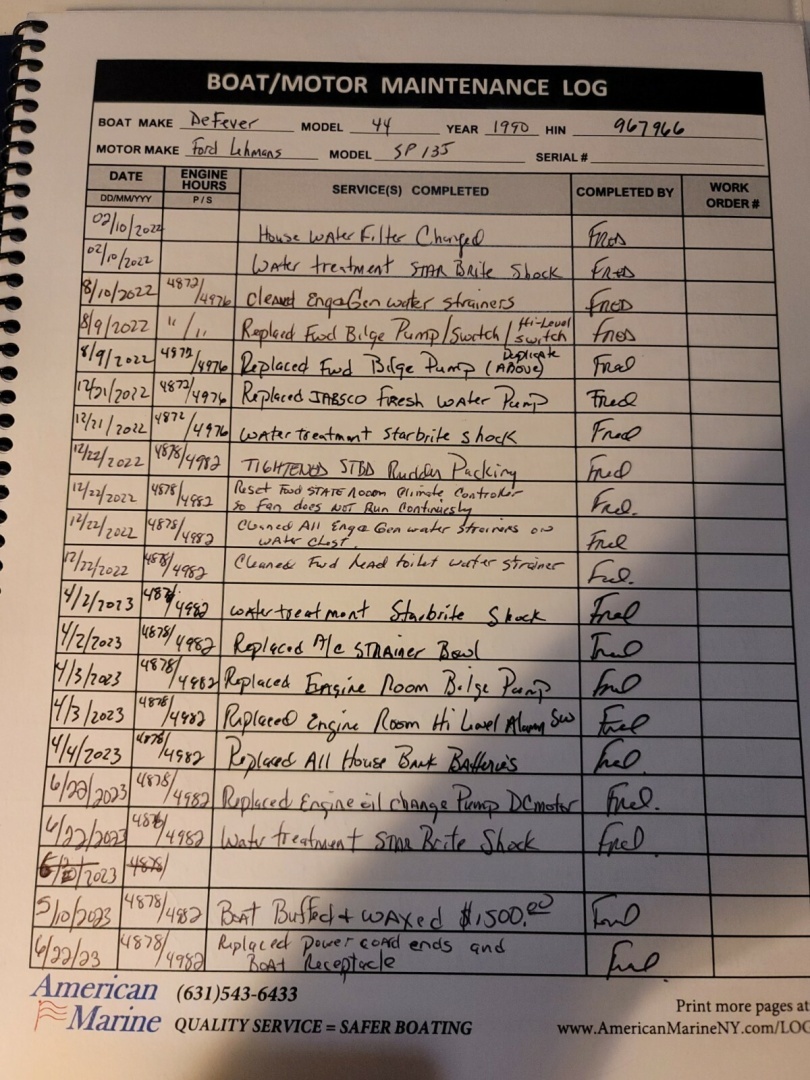 BOAT/MOTOR MAINTENANCE LOG
BOAT MAKE DeFever MODEL 44 YEAR 1990 HIN 967966
MOTOR MAKE Ford Lehmans MODEL SP 135 SERIAL #
DATE ENGINE HOURS SERVICE(S) COMPLETED COMPLETED BY WORK ORDER #
DD/MM/YYY P / S
02/10/2022 House Water Filter Changed Fred
02/10/2022 Water treatment STAR Brite Shock Fred
8/10/2022 4872/4976 Cleaned Eng&Gen water strainers Fred
8/9/2022 "/" Replaced Fwd Bilge Pump/Switch/Hi-Level switch Fred
8/9/2022 4872/4976 Replaced Fwd Bilge Pump (Duplicate ABOVE) Fred
12/21/2022 4872/4976 Replaced JABSCO Fresh Water Pump Fred
12/21/2022 4872/4976 Water treatment Starbrite shock Fred
12/22/2022 4878/4982 TIGHTENED STBD Rudder Packing Fred
12/22/2022 4878/4982 Reset Fwd STATE Room Climate Controller
so Fan does NOT Run Continuesly Fred.
12/22/2022 4878/4982 Cleaned All Eng& Gen water Strainers on
Water Chest. Fred
12/22/2022 4878/4982 Cleaned Fwd head toilet water strainer Fred.
4/2/2023 4878/4982 Water treatment Starbrite Shock Fred
4/2/2023 4878/4982 Replaced A/C STRAINER Bowl Fred
4/3/2023 4878/4982 Replaced Engine Room Bilge Pump Fred
4/3/2023 4878/4982 Replaced Engine Room Hi Level Alarm Sw Fred
4/4/2023 4878/4982 Replaced All House Bank Batteries Fred
6/22/2023 4878/4982 Replaced Engine oil change Pump DC motor Fred.
6/22/2023 4878/4982 Water treatment STAR Brite Shock Fred
/2023 4878/
5/10/2023 4878/4982 Boat Buffed + WAXED $1,500.00 Fred
6/22/23 4878/4982 Replaced Power cord ends and
BOAT Receptacle Fred
American Marine (631)543-6433
QUALITY SERVICE = SAFER BOATING
Print more pages at
www.AmericanMarineNY.com/LOG